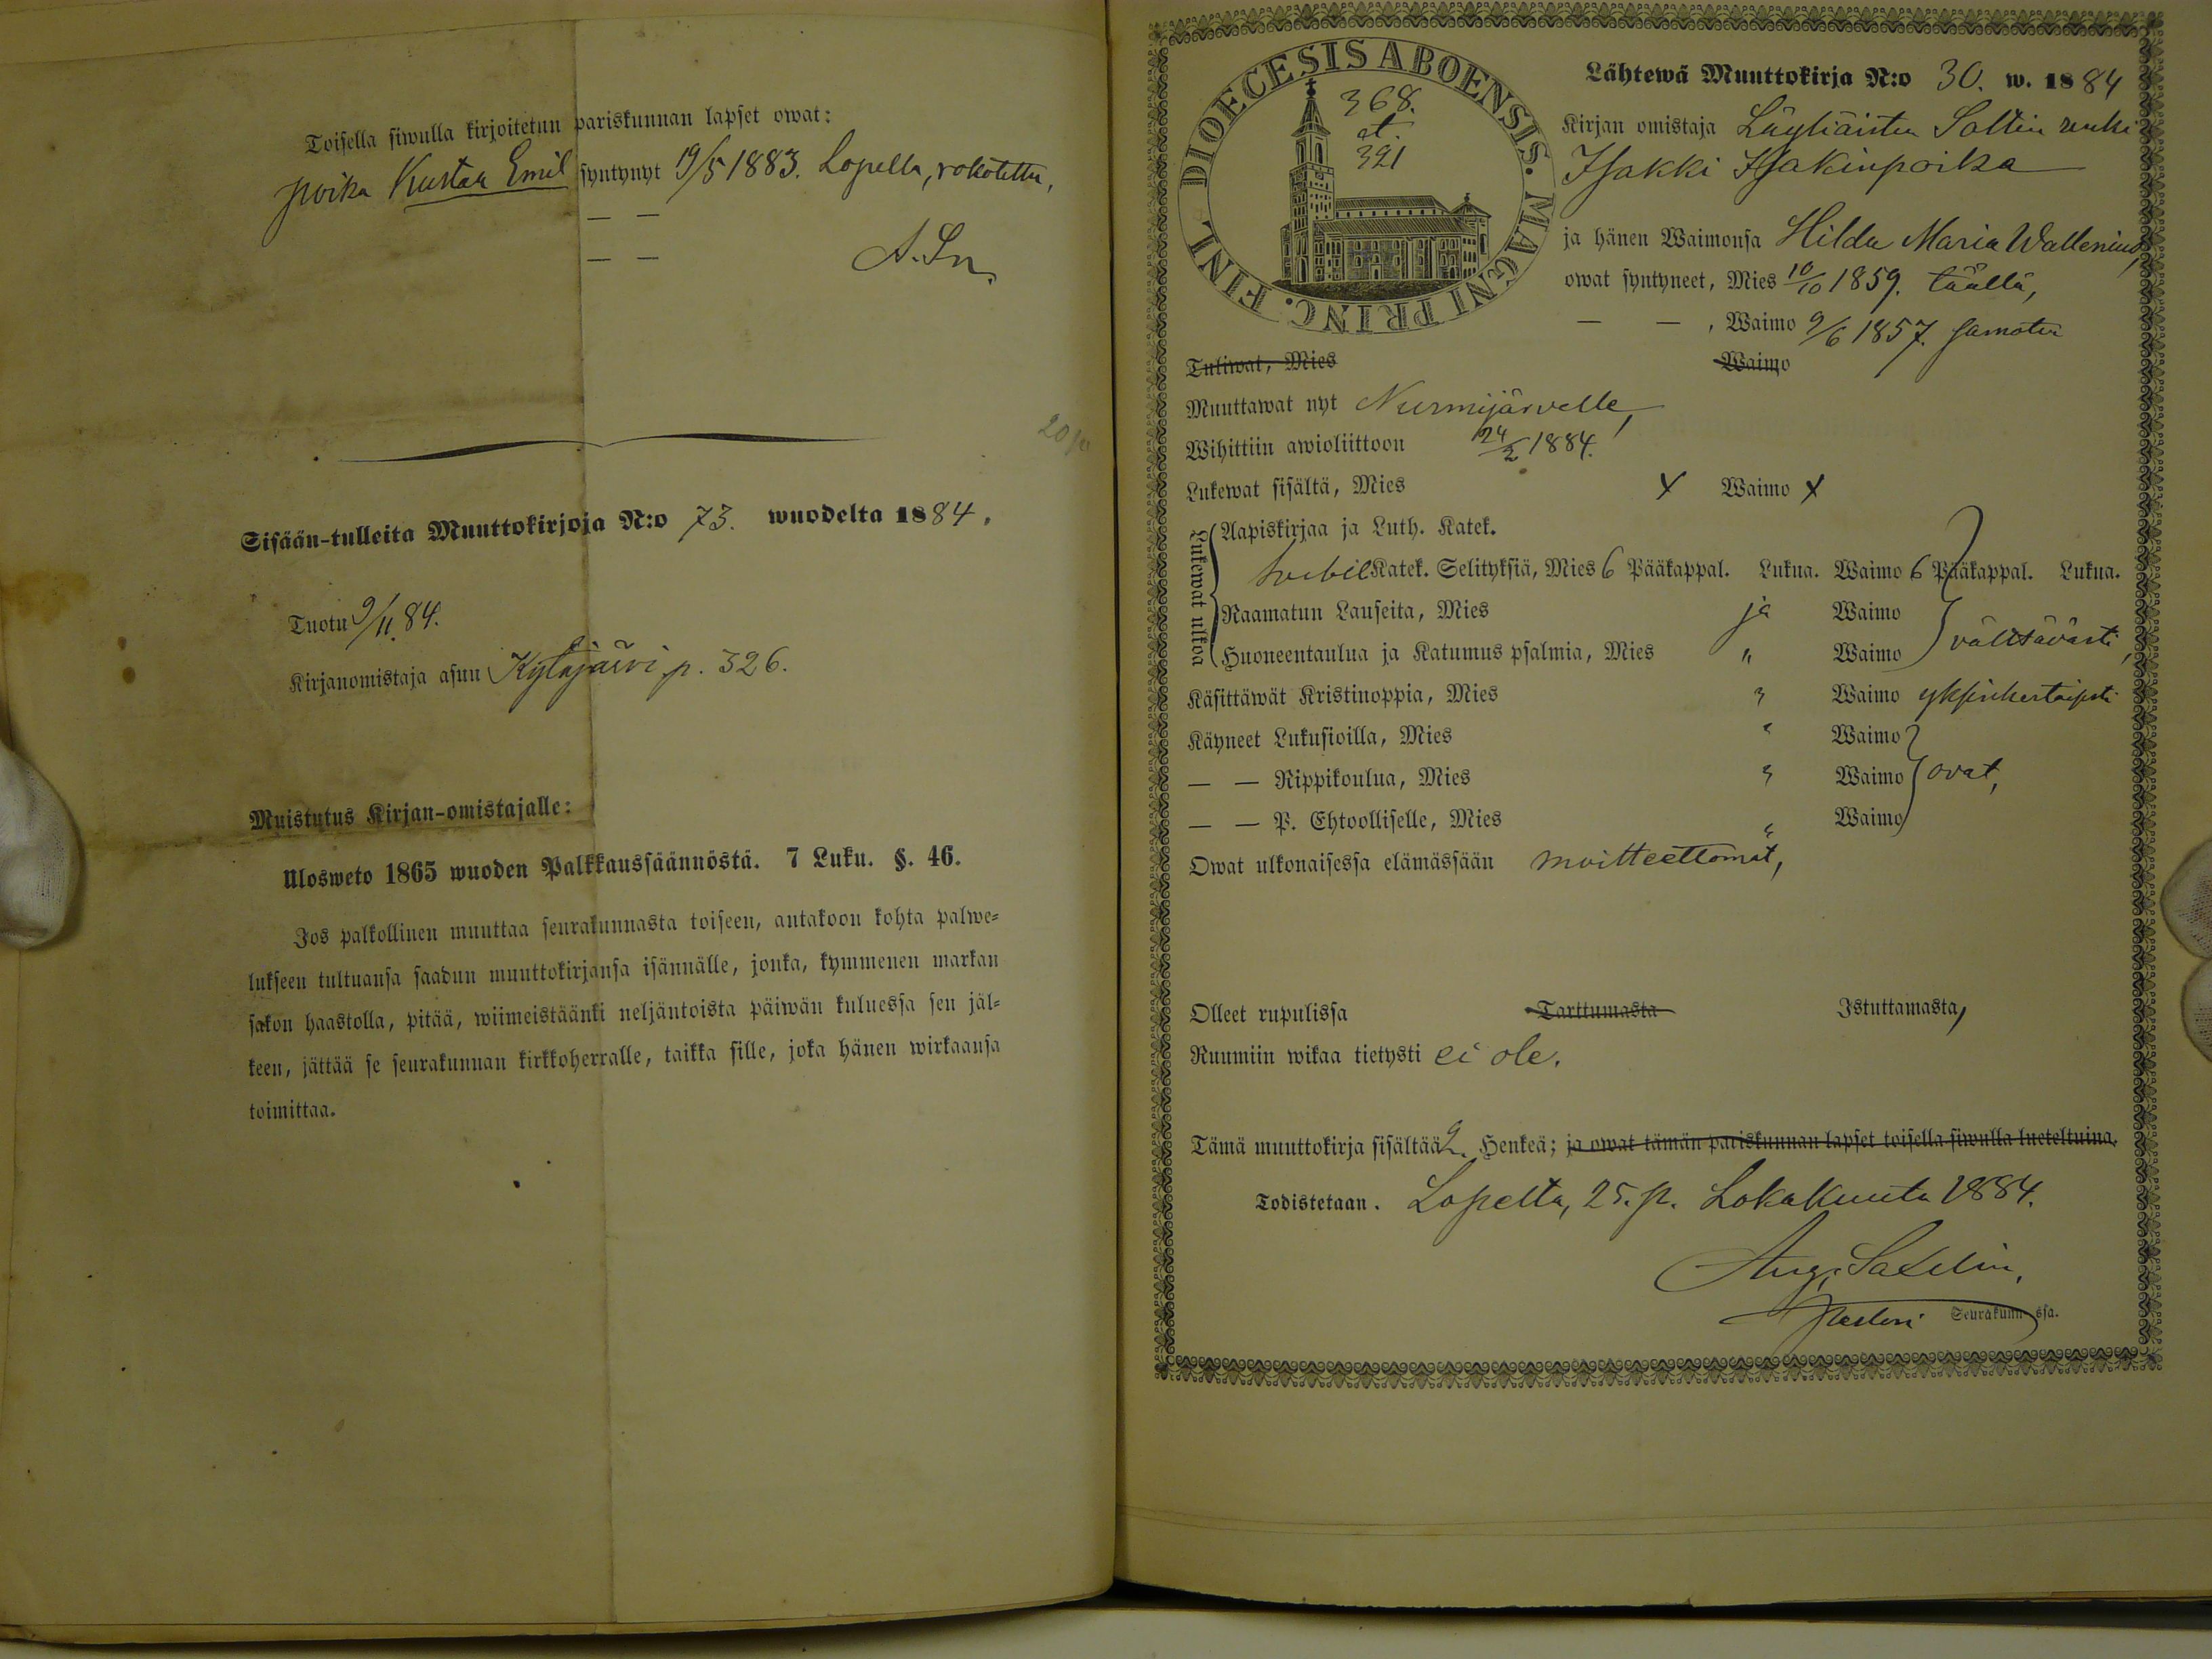 Toisella siwulla kirjoitetun pariskunnan lapset owat:
poika Kustaa Emil syntynyt 19/5 1883. Lopella, rokotettu,
— —
— — A. Sn.
20 p
Sisään-tulleita Muuttokirjoja N:o 73. wuodelta 1884.
Tuotu 9/11. 84.
Kirjanomistaja asuu Kytäjärvi p. 326.
Muistutus Kirjan-omistajalle:
Ulosweto 1865 wuoden Palkkaussäännöstä. 7 Luku. §. 46.
Jos palkollinen muuttaa seurakunnasta toiseen, antakoon kohta palwe=
lukseen tultuansa saadun muuttokirjansa isännälle, jonka, kymmenen markan
sakon haastolla, pitää, wiimeistäänki neljäntoista päiwän kuluessa sen jäl=
keen, jättää se seurakunnan kirkkoherralle, taikka sille, joka hänen wirkaansa
toimittaa.
DIOECESIS ABOENSIS. MAGNI PRINC. FINL
368.
et.
321
Lähtewä Muuttokirja N:o 30. w. 1884
Kirjan omistaja Läyliäisten Saltin renki
Isakki Isakinpoika
ja hänen Waimonsa Hilda Maria Wallenius,
owat syntyneet, Mies 10/10 1859. täällä,
— — , Waimo 9/6 1857. samoten
Tuliwat, Mies Waimo
Muuttawat nyt Nurmijärvelle,
Wihittiin awioliittoon 24/2 1884.
Lukewat sisältä, Mies x Waimo x
Lukewat ulkoa
Aapiskirjaa ja Luth. Katek.
Svebil Katek. Selityksiä, Mies 6 Pääkappal. Lukua. Waimo 6 Pääkappal. Lukua.
Raamatun Lauseita, Mies ja Waimo
Huoneentaulua ja Katumus psalmia, Mies " Waimo välttävästi,
Käsittäwät Kristinoppia, Mies " Waimo yksinkertaisesti
Käyneet Lukusioilla, Mies " Waimo
— — Rippikoulua, Mies " Waimo ovat,
— — P. Ehtoolliselle, Mies " Waimo
Owat ulkonaisessa elämässään moitteettomat,
Olleet rupulissa Tarttumasta Istuttamasta,
Ruumiin wikaa tietysti ei ole.
Tämä muuttokirja sisältää 2. Henkeä; ja owat tämän pariskunnan lapset toisella siwulla lueteltuina.
Todistetaan. Lopelta, 25. p. Lokakuuta 1884.
Aug. Salelin,
Pastori Seurakunn ssa.